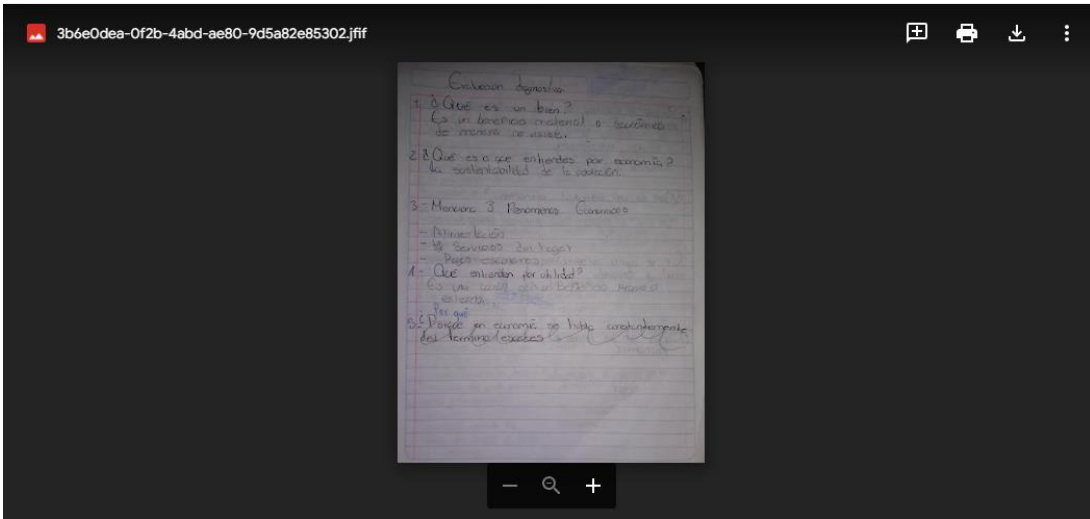 3b6e0dea-0f2b-4abd-ae80-9d5a82e85302.jfif
1. ¿Qué es un bien?
Es un beneficio material o económico
de manera
2. ¿Qué es o que entiendes por economía?
La sostentabilidad de la
3.- Menciona 3 Fenomenos Economicos
- Alimentación
- Servicios del hogar
- Pagos escolares
Qué entiendes por utilidad?
Es un beneficio
Por qué
5. ¿Porque en economia se habla constantemente
del termino escases